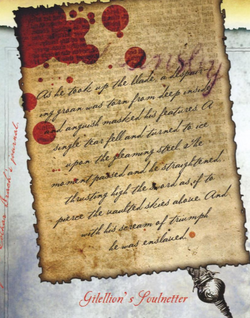 As he took up the blade, a despair-
ing groan was torn from deep inside
and anguish masked his features. A
single tear fell and turned to ice
upon the gleaming steel. The
moment passed and he straightened,
thrusting high the sword as if to
pierce the vaulted skies above. And
with his scream of triumph
he was enslaved.
Gilellion's Soulnetter
journal.